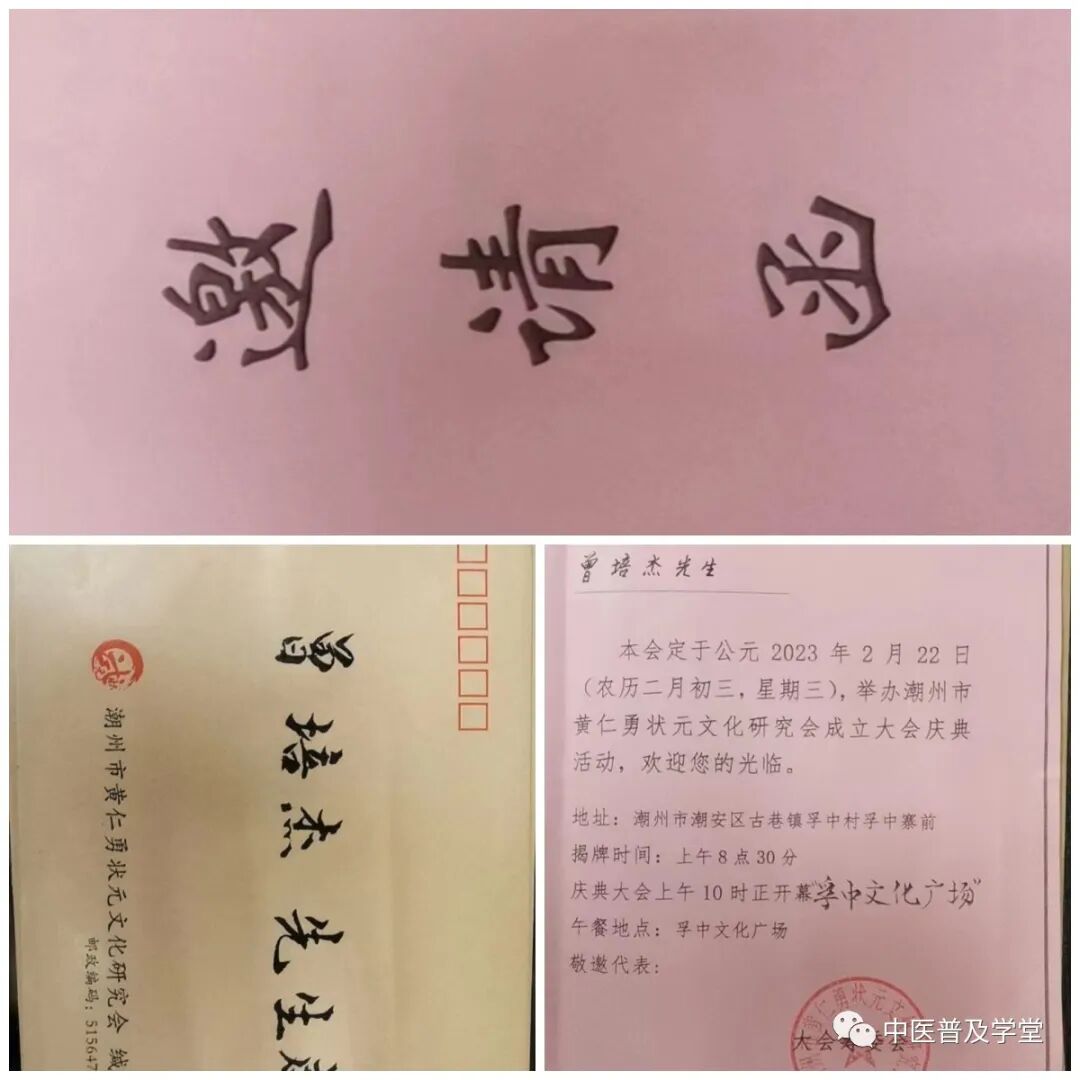 邀请函
曾培杰先生
潮州市黄仁勇状元文化研究会 缄
邮政编码：515647
曾培杰先生
本会定于公元 2023 年 2 月 22 日
（农历二月初三，星期三），举办潮州市
黄仁勇状元文化研究会成立大会庆典
活动，欢迎您的光临。
地址：潮州市潮安区古巷镇孚中村孚中寨前
揭牌时间：上午 8 点 30 分
庆典大会上午 10 时正开幕"孚中文化广场"
午餐地点：孚中文化广场
敬邀代表：
黄仁勇状元文
大会 委会
中医普及学堂